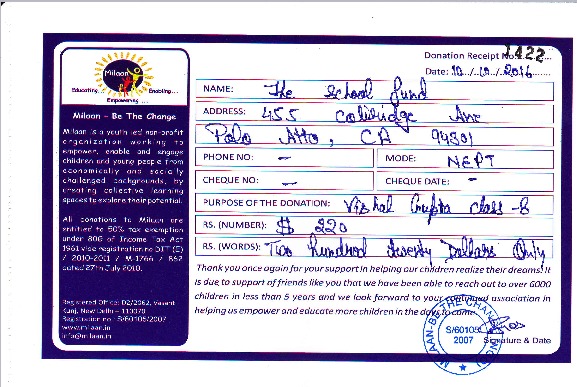 Milaan
Educating... Enabling...
Empowering ...
Milaan - Be The Change
Milaan is a youth led non-profit
organization working to
empower, enable and engage
children and young people from
economically and socially
challenged backgrounds, by
creating collective learning
spaces to explore their potential.
All donations to Milaan are
entitled to 50% tax exemption
under 80G of Income Tax Act
1961 vide registration no DIT (E)
/ 2010-2011 / M-1766 / 862
dated 27th July 2010.
Registered Office: D2/2062, Vasant
Kunj, New Delhi – 110070
Registration no : S/60105/2007
www.milaan.in
info@milaan.in
Donation Receipt No. 1422
Date: 10../.10../..2016
NAME: The School Fund
ADDRESS: 455 Coleridge Ave
Palo Alto, CA 94301
PHONE NO: - MODE: NEFT
CHEQUE NO: - CHEQUE DATE: -
PURPOSE OF THE DONATION: Vishal Gupta Class-8
RS. (NUMBER): $ 220
RS. (WORDS): Two Hundred twenty Dollars Only
Thank you once again for your support in helping our children realize their dreams. It
is due to support of friends like you that we have been able to reach out to over 6000
children in less than 5 years and we look forward to your continued association in
helping us empower and educate more children in the days to come.
MILAAN-BE THE CHANGE (NGO)
S/60105
2007
Signature & Date